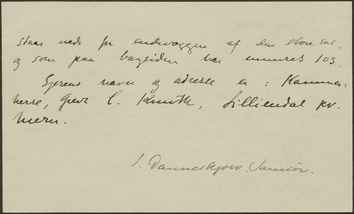 staar neds for endevæggen af den store sal,
og som paa bagsiden har numret 103.
Ejerens navn og adresse er: Kammer-
herre, Greve C. Knuth, Lilliendal pr.
Mern.
J. Danneskjold Samsøe.